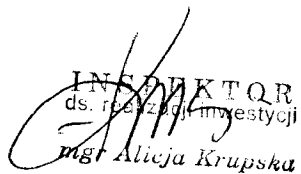 INSPEKTOR
ds. realizacji inwestycji
mgr Alicja Krupska